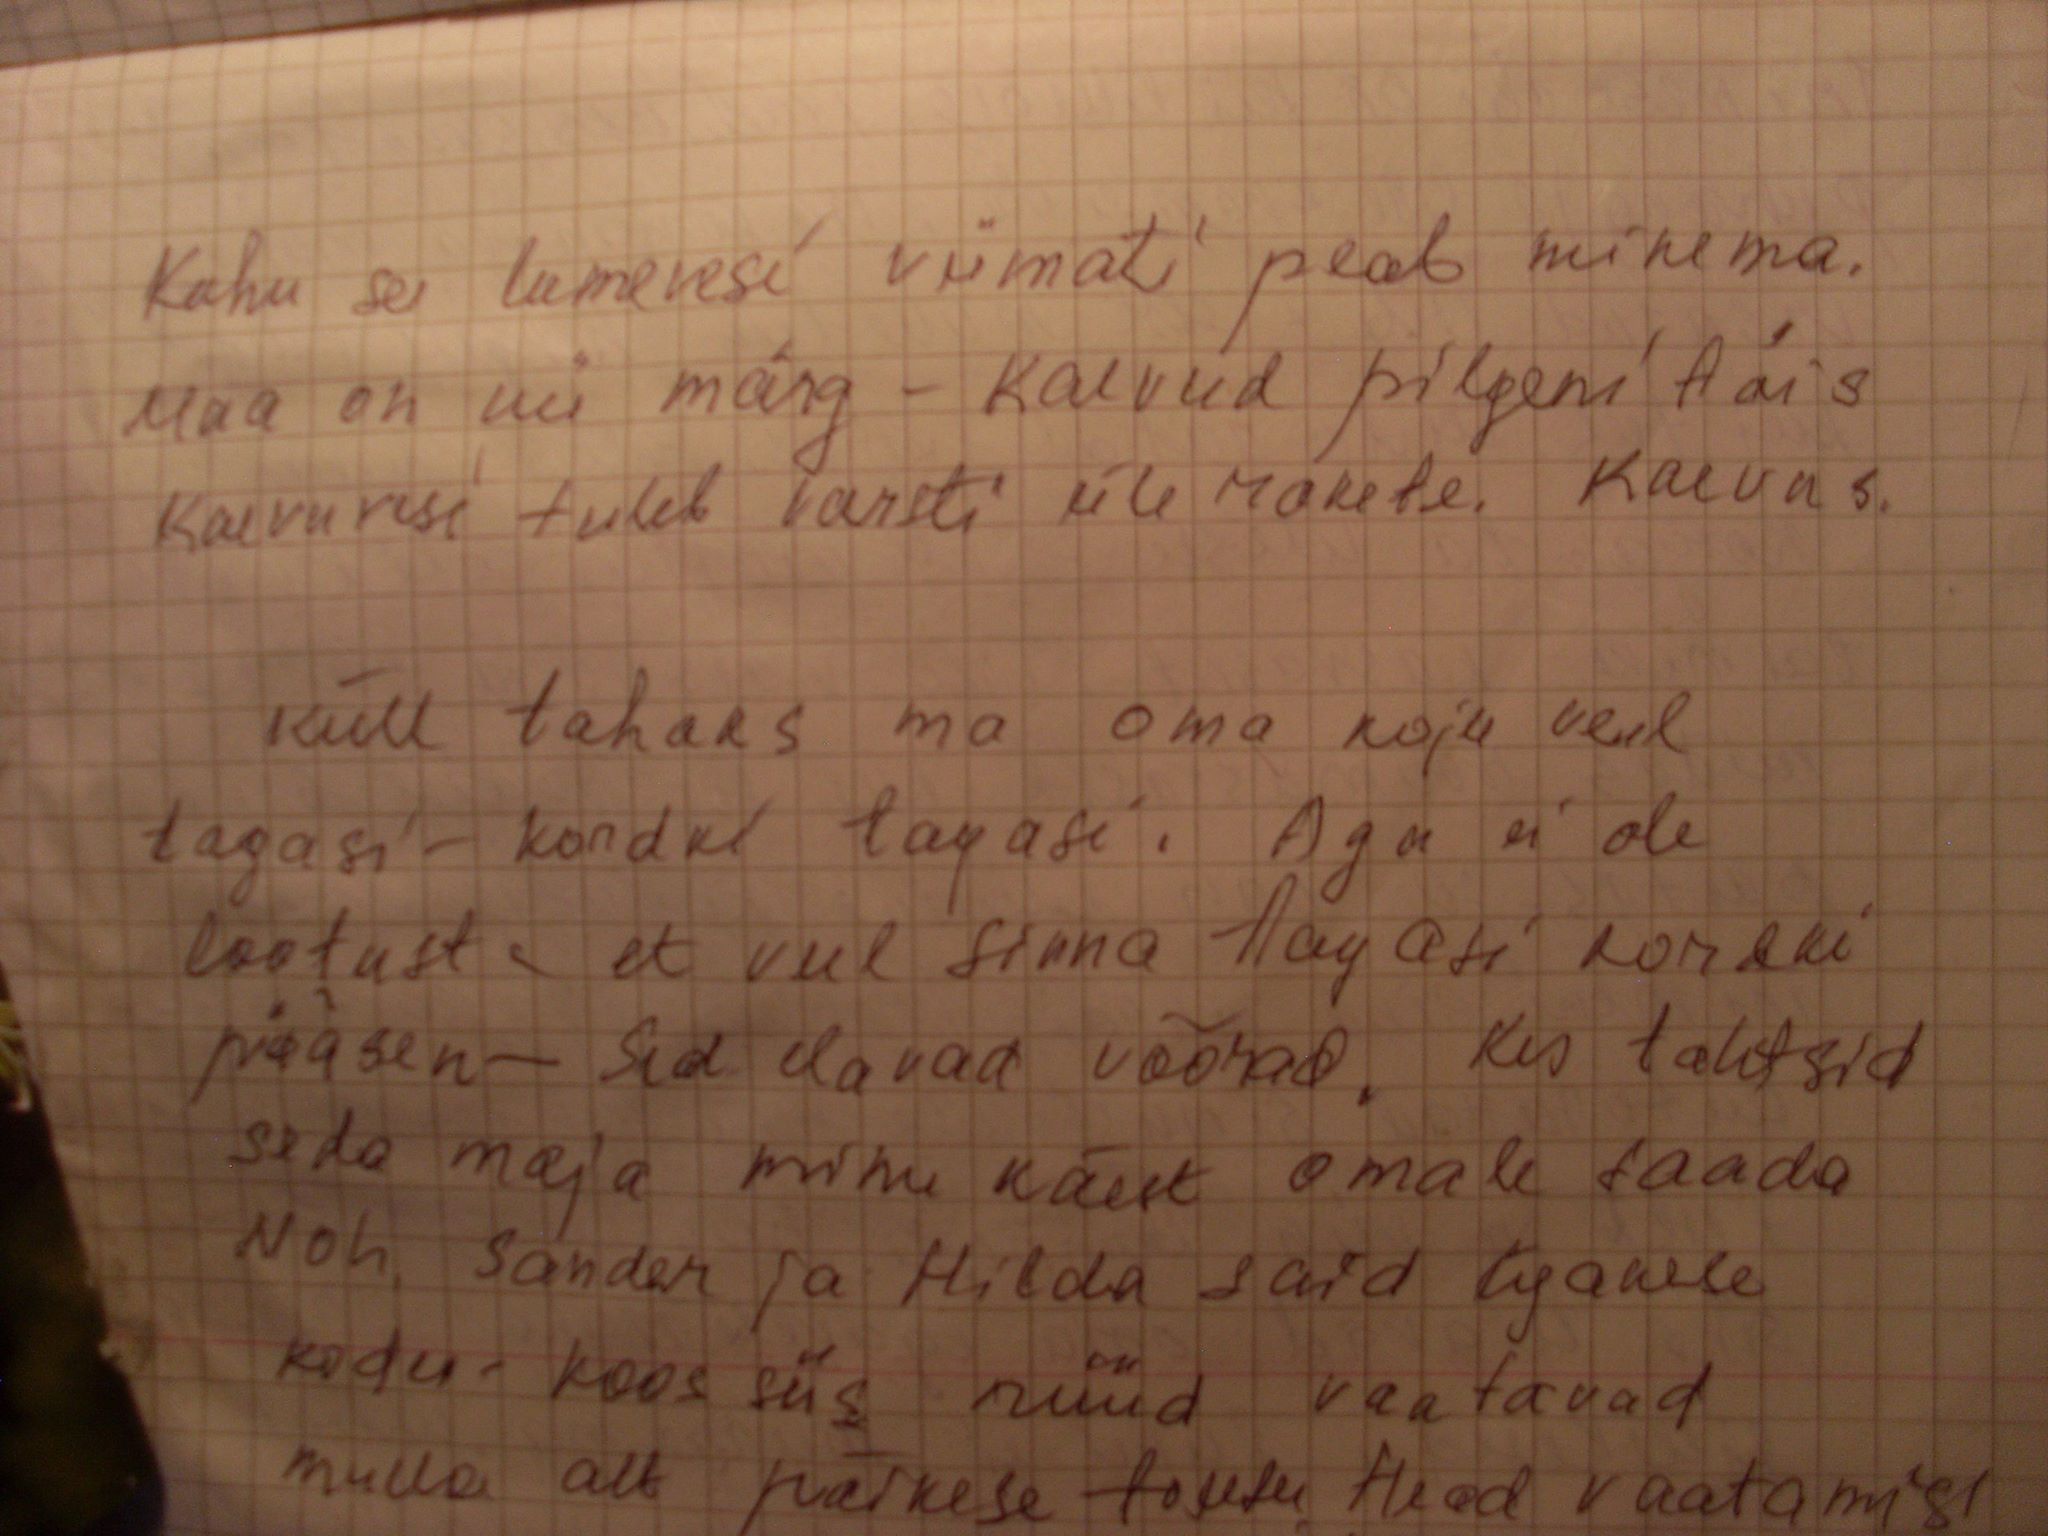 Kuhu se lumevesi viimati peab minema.
Maa on nii märg - Kaevud pilgeni täis
Kaevuvesi tuleb varsti üle rakete. Kaevus.
Küll tahaks ma oma koju veel
tagasi - kordki tagasi. Aga ei ole
lootust - et veel sinna tagasi kordki
pääsen - Seal elavad võõrad. Kes tahtsid
seda maja minu käest omale saada
Noh, Sander ja Hilda said
kodu - koos siis nüüd vaatavad
mulla alt päikese tõusu. Head vaatamist